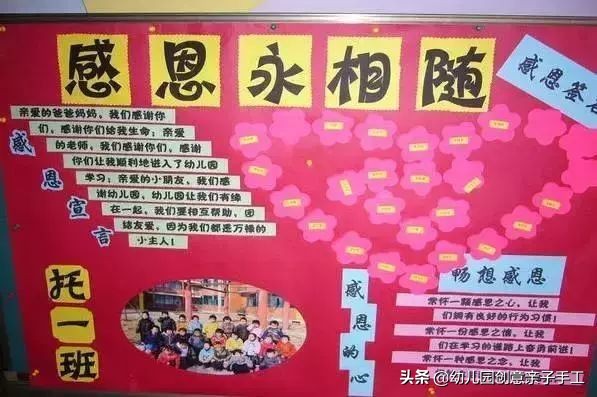 感恩永相随
感恩签名
感恩宣言
亲爱的爸爸妈妈，我们感谢你
们，感谢你们给我生命；亲爱
的老师，我们感谢你们，感谢
你们让我顺利地进入了幼儿园
学习；亲爱的小朋友，我们感
谢幼儿园，幼儿园让我们有缘
在一起，我们要相互帮助，团
结友爱，因为我们都是万禄的
小主人！
托一班
感恩的心
畅想感恩
常怀一颗感恩之心，让我
们拥有良好的行为习惯！
常怀一份感恩之情，让我
们在学习的道路上奋勇前进！
常怀一种感恩之念，让我
头条 @幼儿园创意亲子手工